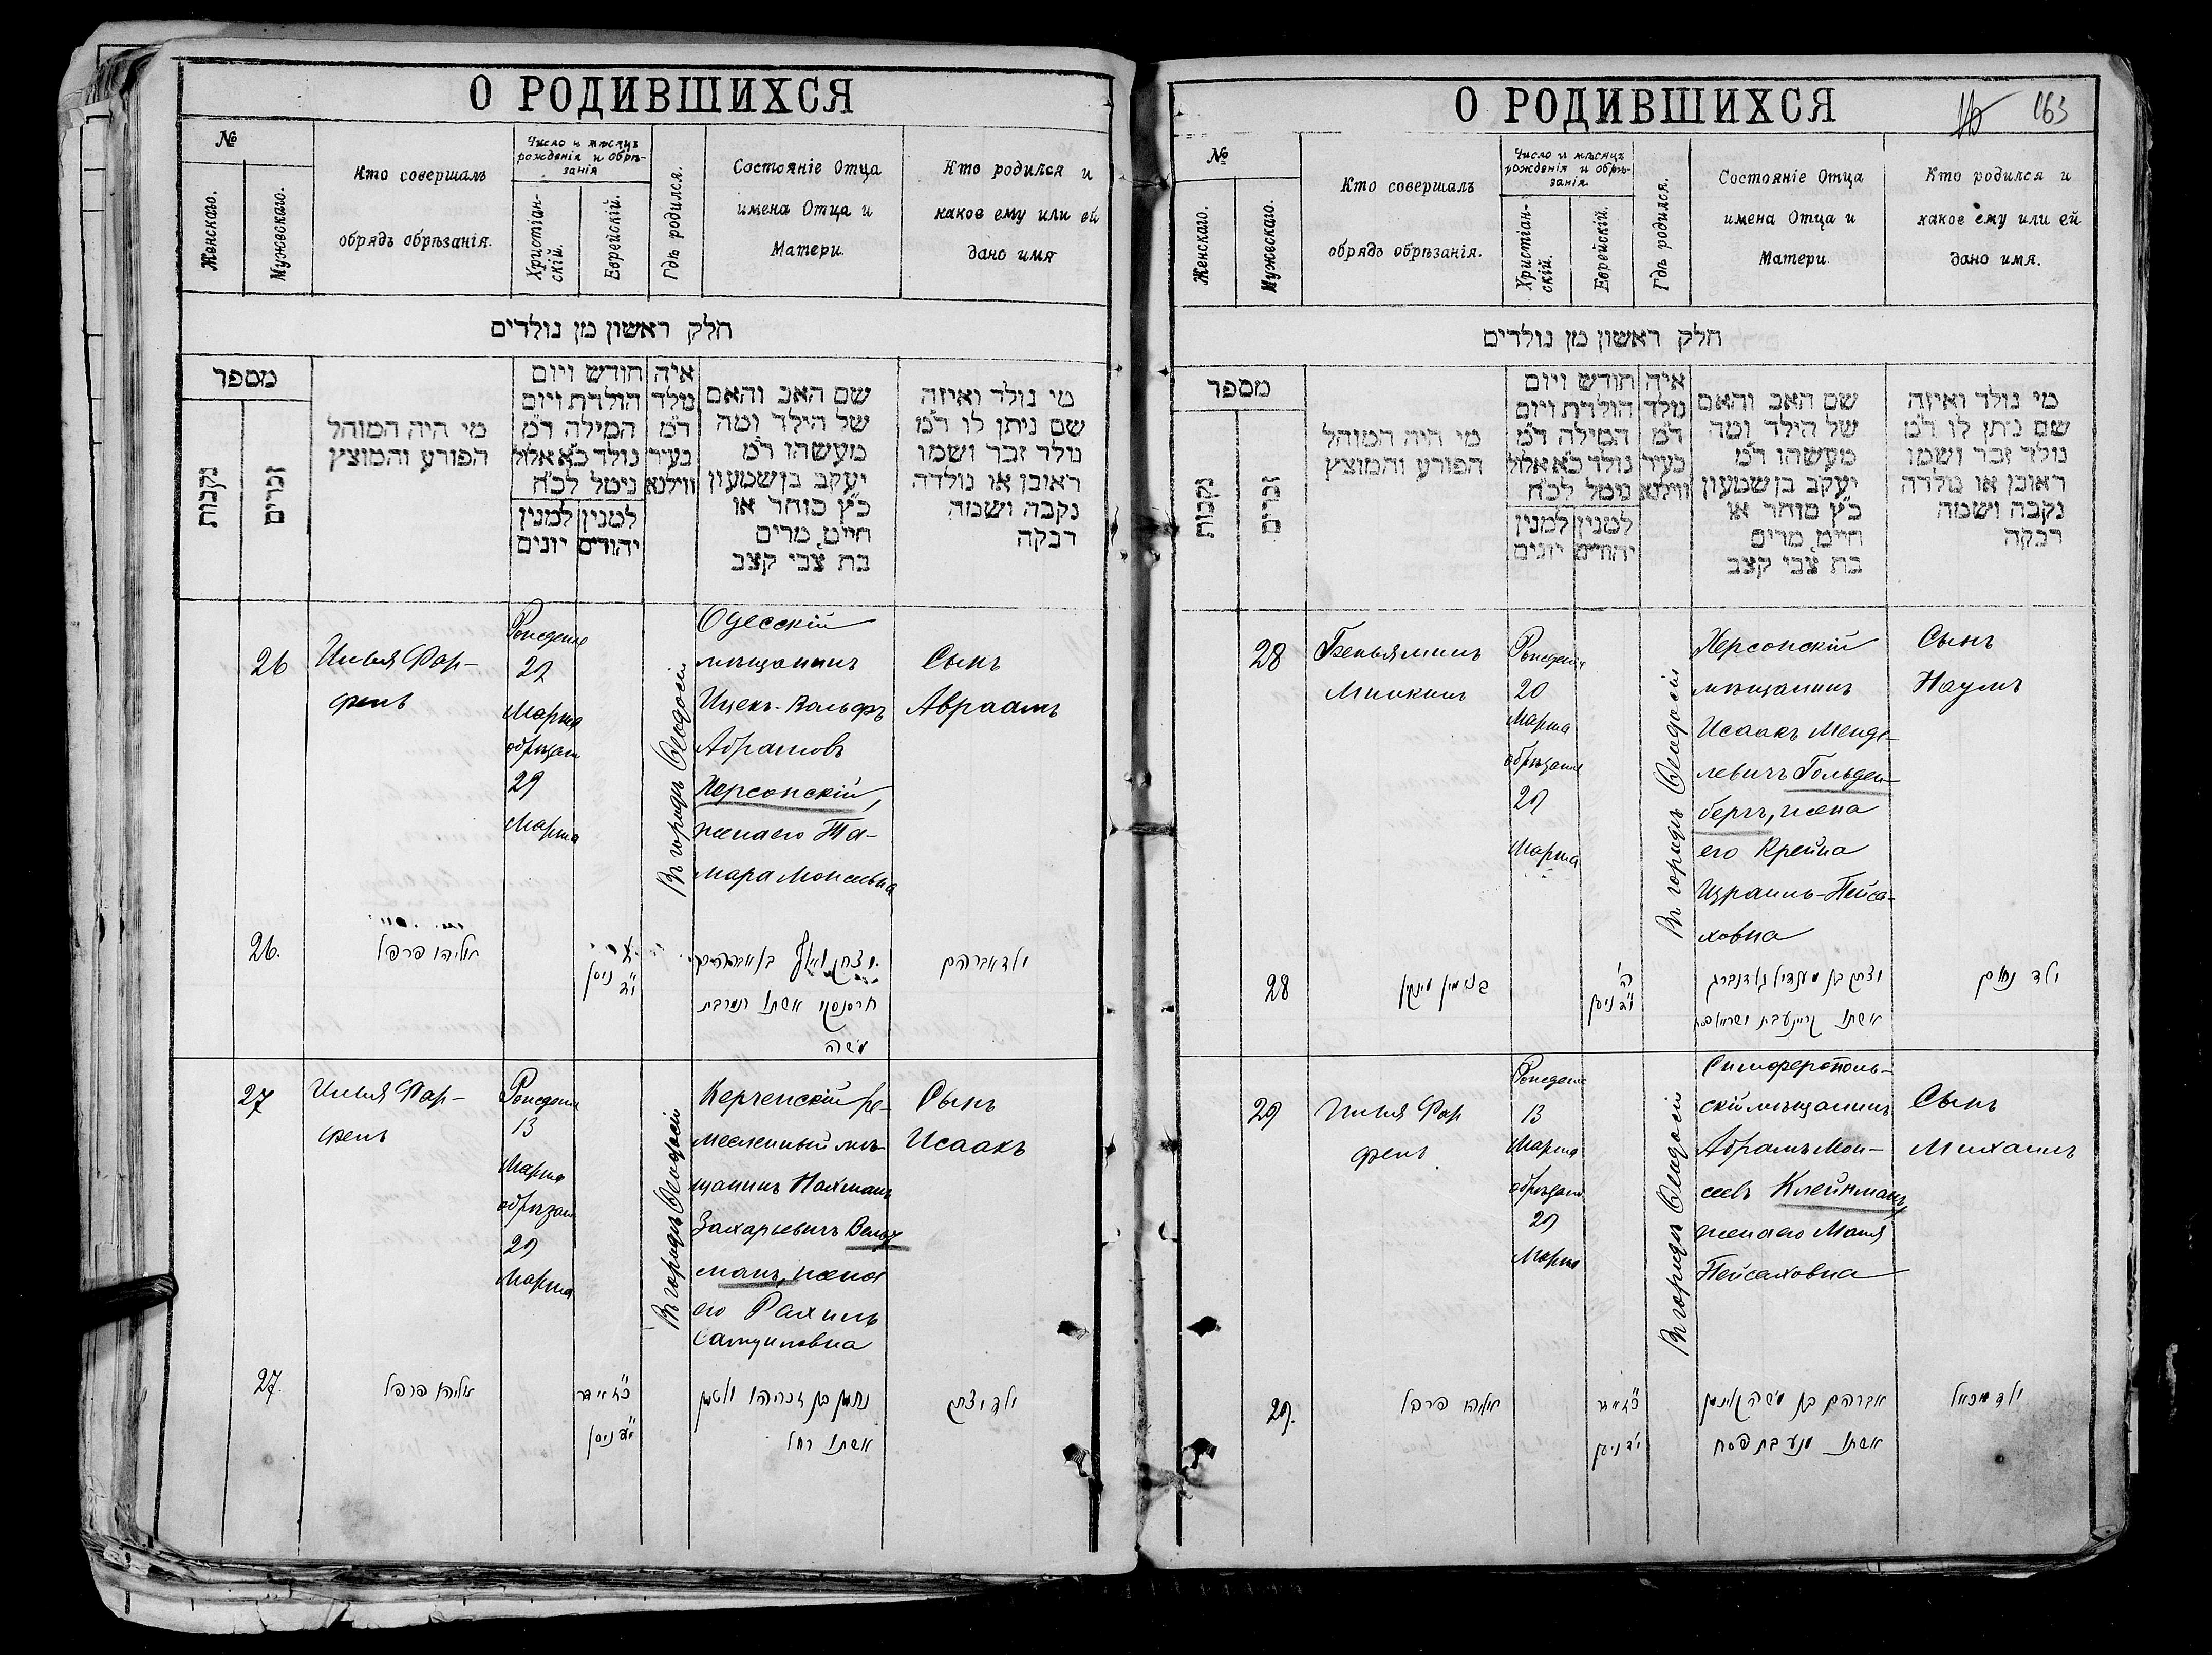 О РОДИВШИХСЯ
№
Женскаго.
Мужескаго.
Кто совершалъ
обрядъ обрѣзанія.
Число и мѣсяцъ
рожденія и обрѣ-
занія
Христіан-
скій.
Еврейскій.
Гдѣ родился.
Состояніе Отца
имена Отца и
Матери.
Кто родился и
какое ему или ей
дано имя
חלק ראשון מן נולדים
מספר
נקבות
זכרים
מי היה המוהל
הפורע והמוצץ
חודש ויום
הולדת ויום
המילה ד״מ
נולד כ״א אלול
ניטל לכ״ח
למנין למנין
יהודים יונים
איה
נולד
ד״מ
בעיר
ווילנא
שם האב והאם
של הילד ומה
מעשהו ד״מ
יעקב בן שמעון
כ״ץ סוחר או
חיים מרים
בת צבי קצב
מי נולד ואיזה
שם ניתן לו ד״מ
נולד זכר ושמו
ראובן או נולדה
נקבה ושמה
רבקה
26
Илья Фар-
фель
22
Марта
29
Марта
Въ городѣ Ѳеодосіи
Одесскій
мѣщанинъ
Ицекъ-Вольфъ
Абрамовъ
Херсонскій,
жена его Та-
мара Моисеевна
Сынъ
Авраамъ
26.
אליהו פרפל
ניסן
אשתו תמר בת
משה
ילד אברהם
27
Илья Фар-
фель
13
Марта
29
Марта
Въ городѣ Ѳеодосіи
Керченскій ре-
месленный мѣ-
щанинъ Нахманъ
Захарьевичъ
манъ, жена
его Рахиль
Самуиловна
Сынъ
Исаакъ
27.
אליהו פרפל
כ״ז אדר
ניסן
נחמן בן זכריהו
אשתו רחל
ילד יצחק
О РОДИВШИХСЯ
163
№
Женскаго.
Мужескаго.
Кто совершалъ
обрядъ обрѣзанія.
Число и мѣсяцъ
рожденія и обрѣ-
занія.
Христіан-
скій.
Еврейскій.
Гдѣ родился.
Состояніе Отца
имена Отца и
Матери.
Кто родился и
какое ему или ей
дано имя.
חלק ראשון מן נולדים
מספר
נקבות
זכרים
מי היה המוהל
הפורע והמוצץ
חודש ויום
הולדת ויום
המילה ד״מ
נולד כ״א אלול
ניטל לכ״ח
למנין למנין
יהודים יונים
איה
נולד
ד״מ
בעיר
ווילנא
שם האב והאם
של הילד ומה
מעשהו ד״מ
יעקב בן שמעון
כ״ץ סוחר או
חיים מרים
בת צבי קצב
מי נולד ואיזה
שם ניתן לו ד״מ
נולד זכר ושמו
ראובן או נולדה
נקבה ושמה
רבקה
28
Беньяминъ
Минкинъ
20
Марта
29
Марта
Въ городѣ Ѳеодосіи
Херсонскій
мѣщанинъ
Исаакъ Менде-
левичъ Гольден-
бергъ, жена
его Крейна
Израиль-Пейса-
ховна
Сынъ
Наумъ
28
בנימין מינקין
ניסן
יצחק בן מענדיל גולדנברג
אשתו
ילד נחום
29
Илья Фар
фель
13
Марта
29
Марта
Въ городѣ Ѳеодосіи
Симферополь-
скій мѣщанинъ
Абрамъ Мои-
сеевъ Клейнманъ
жена его Маня
Пейсаховна
Сынъ
Михаилъ
29.
אליהו פרפל
כ״ז אדר
ניסן
אברהם בן משה קליינמן
אשתו מניע בת פסח
ילד מיכאל